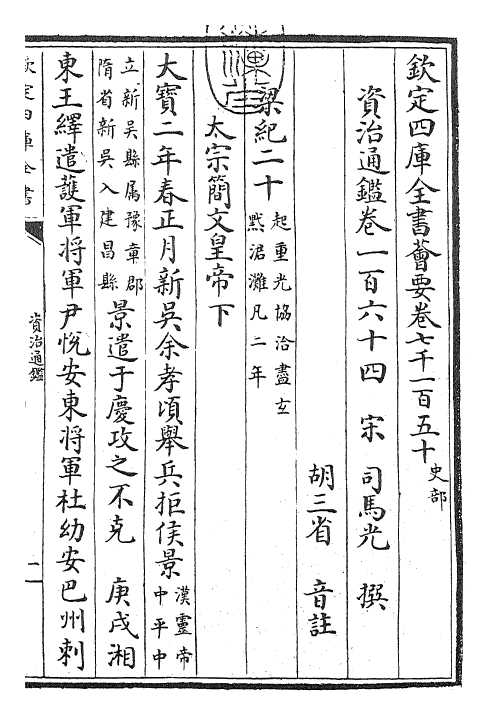 欽定四庫全書薈要卷七千一百五十 史部
資治通鑑卷一百六十四 宋 司馬光 撰
胡三省 音註
梁紀二十 起重光協洽盡玄
黓涒灘凡二年
太宗簡文皇帝下
大寶二年春正月新吳余孝頃舉兵拒侯景 漢靈帝
中平中
立新吳縣属豫章郡
隋省新吳入建昌縣 景遣于慶攻之不克 庚戌湘
東王繹遣護軍將軍尹悅安東將軍杜幼安巴州刺
欽定四庫全書
資治通鑑
一